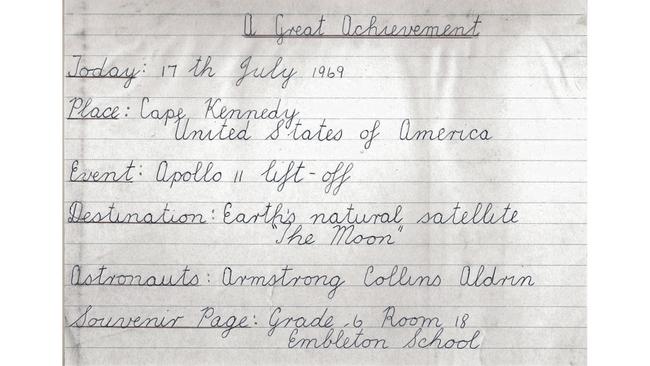 A Great Achievement
Today: 17 th July 1969
Place: Cape Kennedy
United States of America
Event: Apollo 11 lift-off
Destination: Earth's natural satellite
"The Moon"
Astronauts: Armstrong Collins Aldrin
Souvenir Page: Grade 6 Room 18
Embleton School